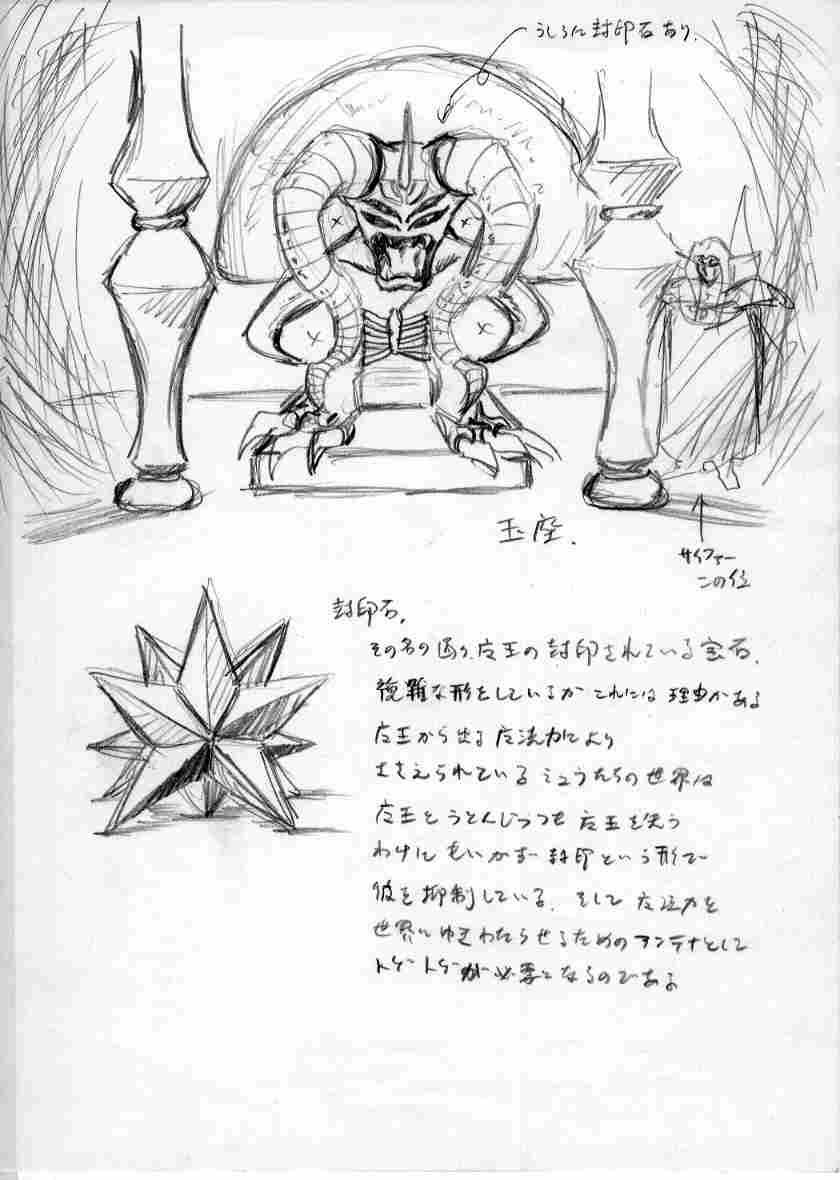 うしろに封印石あり.
玉座.
サイファー
この位
封印石.
その名の通り、広王の封印されている宝石.
複雑な形をしているが これには 理由がある
広王から出る 広法力により
ささえられている ミュウたちの世界は
広王をうとんじつつも 広王を失う
わけにもいかず 封印という形で
彼を抑制している. そして 広法力を
世界にゆきわたらせるためのアンテナとして
トゲートゲーが必要となるのである